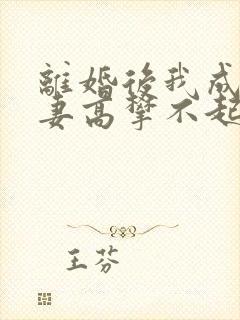 離婚後我成
妻高攀不起
王芬